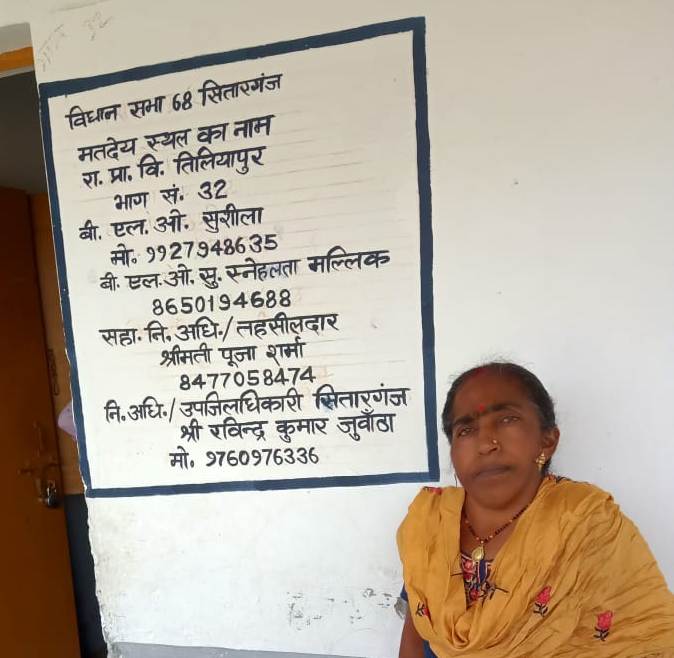 विधान सभा 68 सितारगंज
मतदेय स्थल का नाम
रा. प्रा. वि. तिलियापुर
भाग सं. 32
बी. एल. ओ. सुशीला
मो. 9927948635
बी. एल. ओ. सु. स्नेहलता मल्लिक
8650194688
सहा. नि. अधि./तहसीलदार
श्रीमती पूजा शर्मा
8477058474
नि. अधि./उपजिलधिकारी सितारगंज
श्री रविन्द्र कुमार जुवाँठा
मो. 9760976336